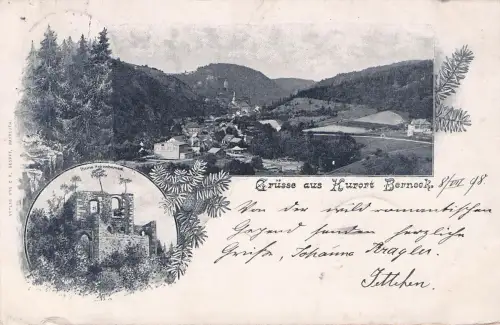 Grüsse aus Kurort Berneck. 8/VII 98.
Von der wild romantischen
Gegend senden herzliche
Grüße, Johanna